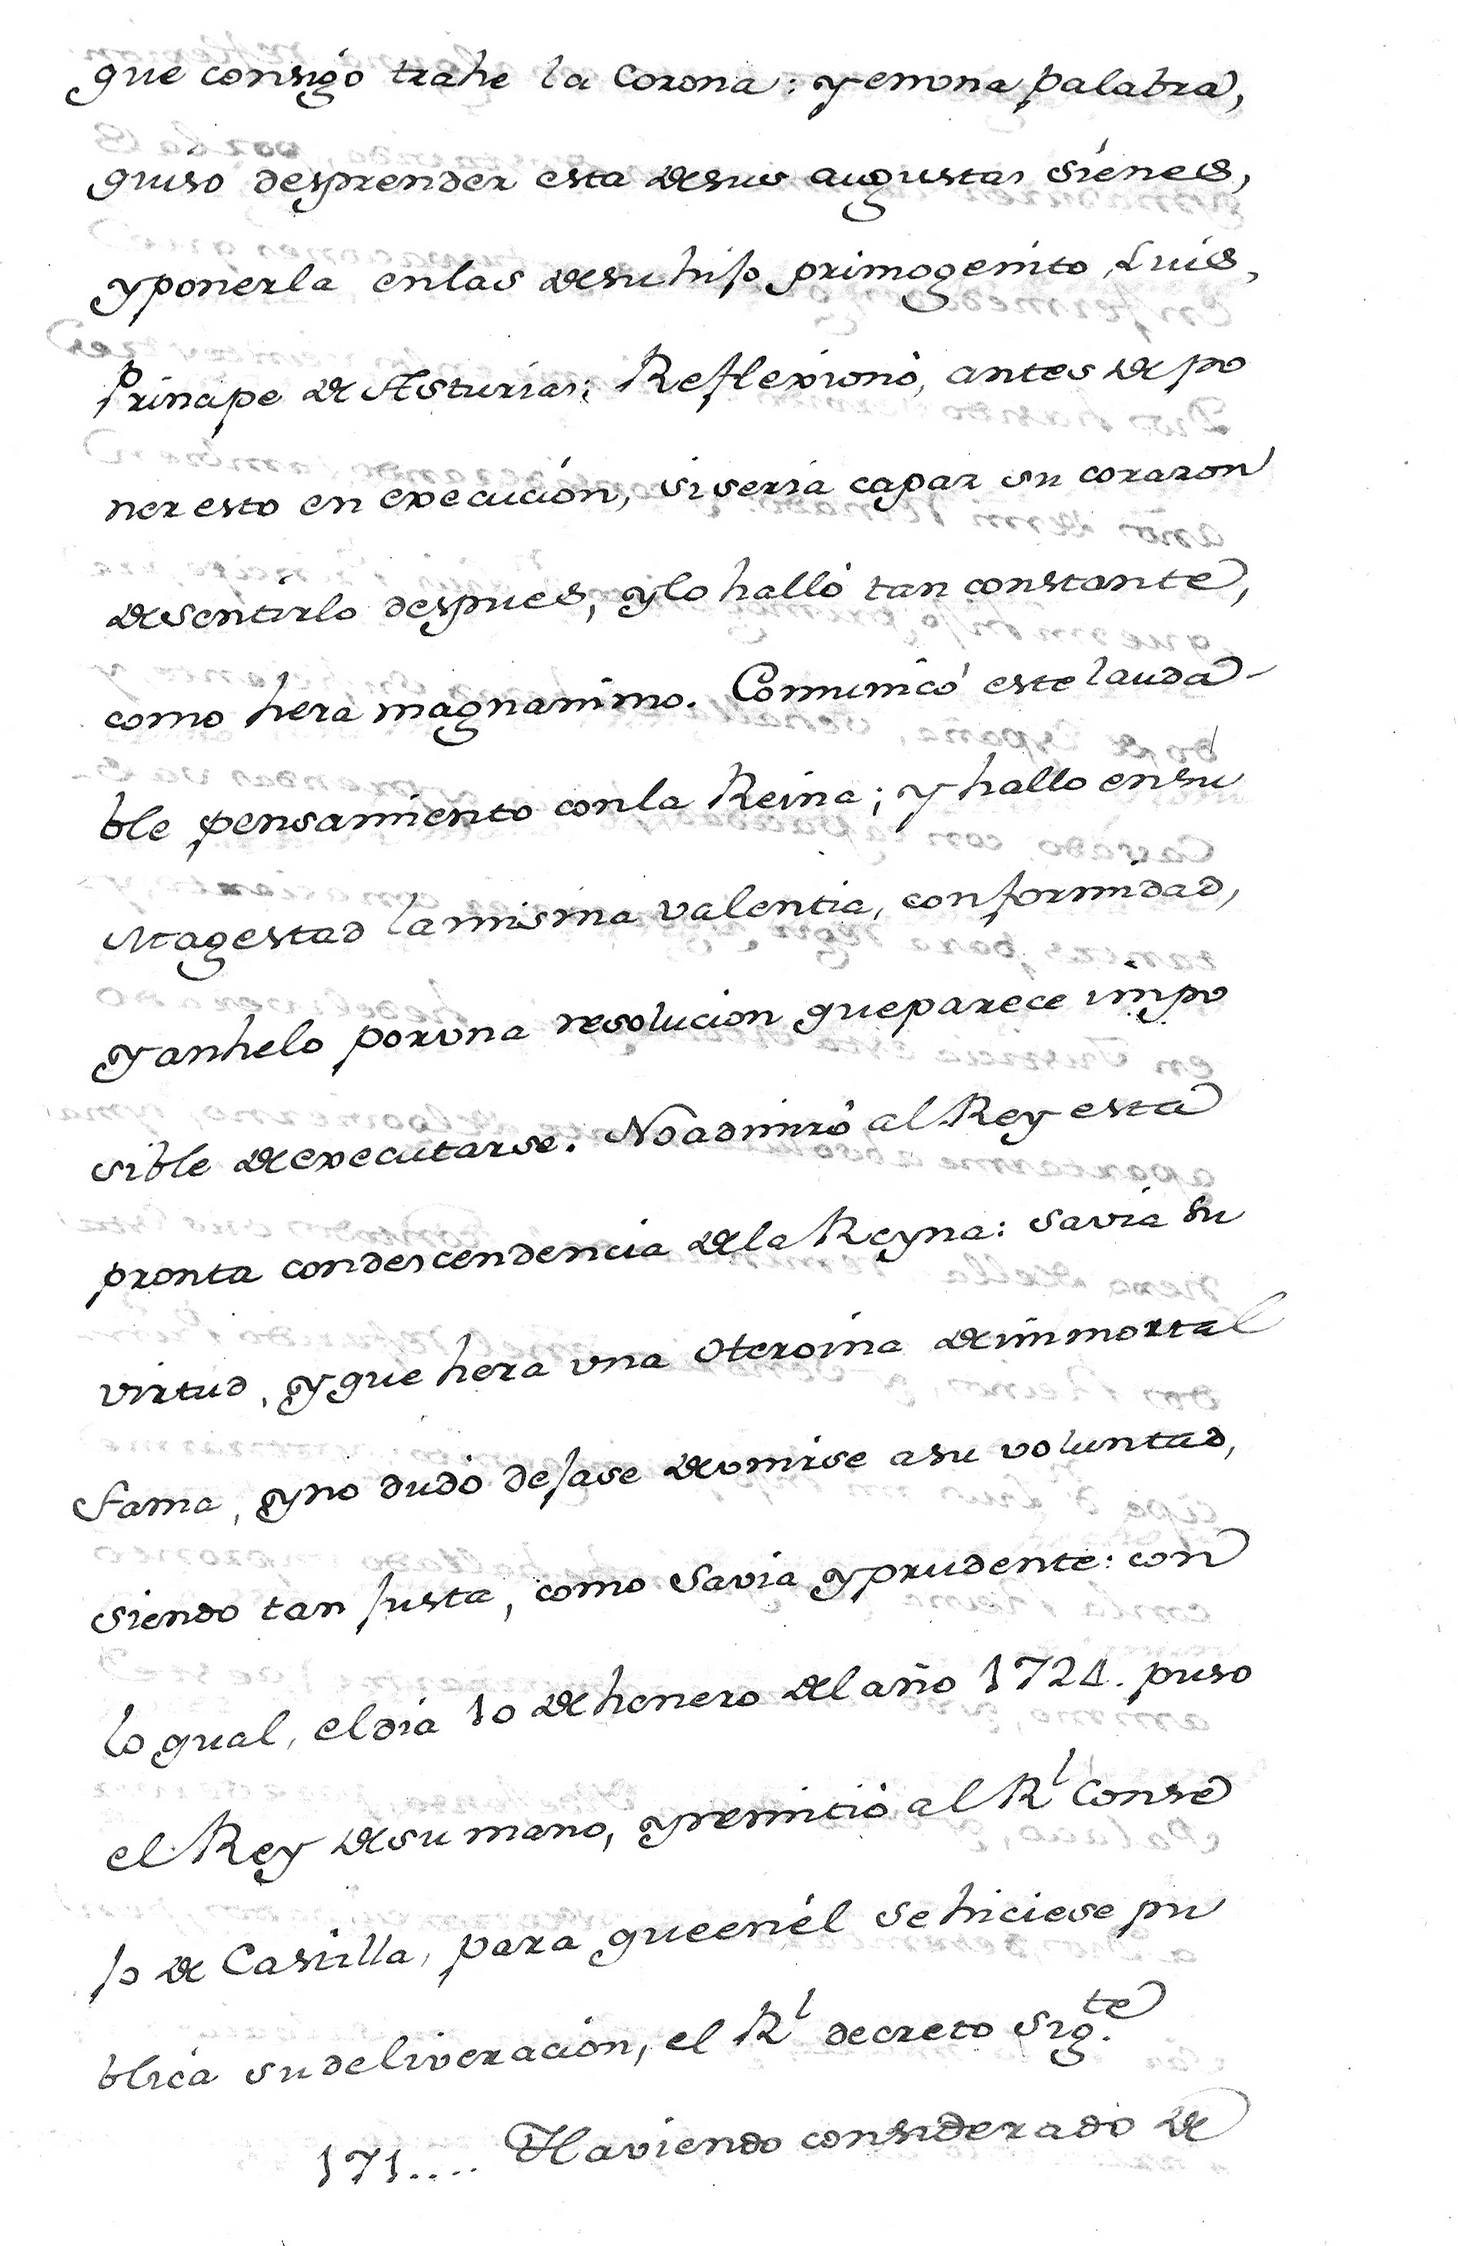 que consigo trahe la Corona: y en una palabra,
quiso desprender esta de sus augustas Sienes,
y ponerla en las de su hijo primogenito, Luis,
Principe de Asturias; Reflexionó, antes de po
ner esto en execución, si sería capaz su corazon
de sentirlo despues, y lo halló tan constante,
como hera magnanimo. Comunicó este lauda-
ble pensamiento con la Reina; y hallo en su
Magestad la misma valentia, conformidad,
y anhelo por una resolucion que parece impo
sible de executarse. No admiró al Rey esta
pronta condescendencia de la Reyna: Savia su
virtud, y que hera una Heroina de immortal
fama, y no dudó dejase de unirse a su voluntad,
siendo tan justa, como Savia y prudente: con
lo qual, el dia 10 de henero del año 1724. puso
el Rey de su mano, y remitió al Rl Conse
jo de Castilla, para que en él se hiciese pu
blica su deliveración, el Rl decreto Sig.te
171.... Haviendo considerado de